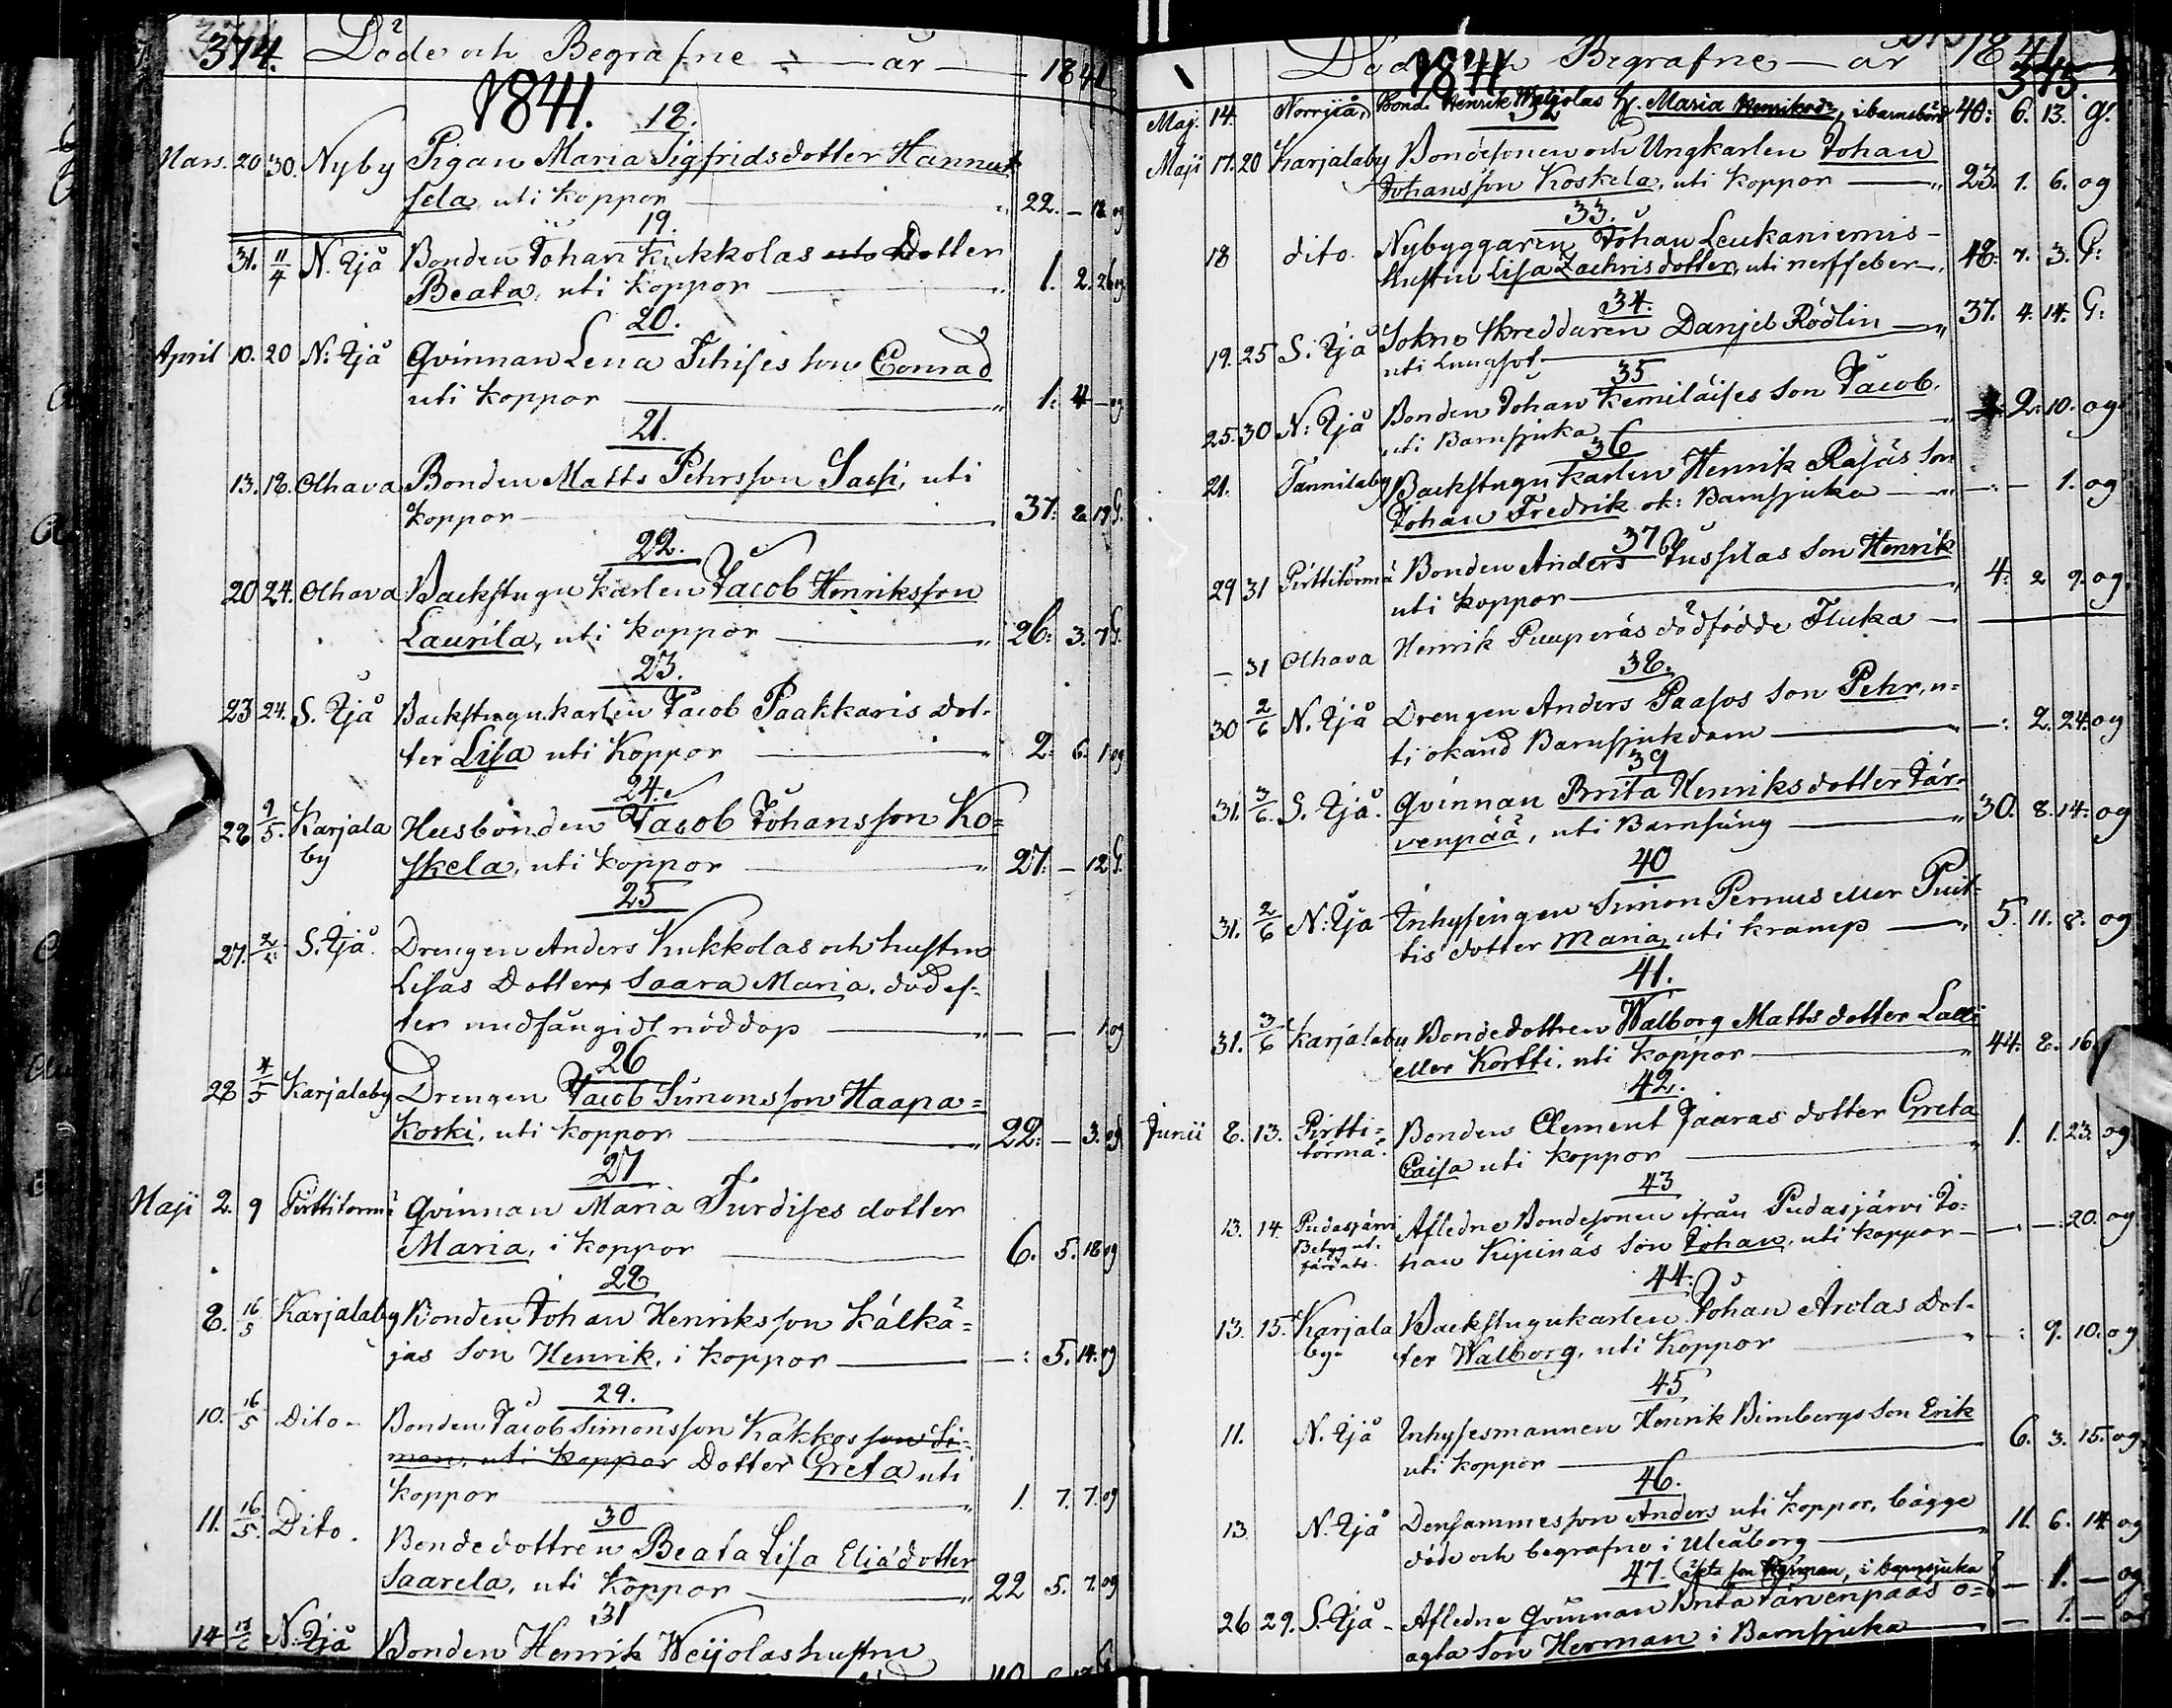 374. Döde och Begrafne — år — 1841
1841.
18.
Mars. 20 30. Nyby Pigan Maria Sigfridsdotter Hannuk
sela, uti koppor 22. – 18 og
19.
31. 11/4 N. Ijå Bonden Johan Kukkolas Dotter
Beata, uti koppor 1. 2. 26 og
20.
April 10. 20 N: Ijå Qvinnan Lena Schises son Conrad
uti koppor 1. 4 – og
21.
13. 18. Olhava Bonden Matts Pehrsson Sassi, uti
koppor 37. 2. 19 G.
22.
20 24. Olhava Backstugukarlen Jacob Henriksson
Laurila, uti koppor 26: 3. 7 G.
23.
23 24. S. Ijå Backstugukarlen Jacob Paakkaris dot-
ter Lisa uti Koppor 2: 6. 1 og
24.
28 9/5. Karjala Husbonden Jacob Johansson Ko=
by skela, uti koppor 27. – 12 G.
25
27. S. Ijå. Drengen Anders Kukkolas och hustru
Lisas Dotter Saara Maria, död ef-
ter undfångidt nöddop — — 1 og
26
28 4/5 Karjalaby Drengen Jacob Simonsson Haapa=
koski, uti koppor 22: – 3. og
27
Maji 2. 9 Pirttitörmä Qvinnan Maria Turdises dotter
Maria, i koppor 6. 5. 18 og
28
8. 16/5 Karjalaby Bonden Johan Henriksson Kälkä=
jas Son Henrik, i koppor —: 5. 14. og
29.
10. 16/5 Dito Bonden Jacob Simonsson Kakkos son Si-
mon, uti koppor Dotter Greta uti
koppor 1. 7. 7. og
30
11. 16/5. Dito. Bondedottren Beata Lisa Eliædotter
Saarela, uti koppor 22 5. 7. og
31
14 N: Ijå Bonden Henrik Weijolas hustru
Döde och Begrafne — år 1841
1841 375.
Maj. 14. Norrijå, Bond. Henrik Weijolas H. Maria Henriksdr, i barnsbörd 40: 6. 13. G.
32
Maji 17. 20 Karjalaby Bondesonen och Ungkarlen Johan
Johansson Koskela, uti koppor 23. 1. 6. og
33.
18 dito. Nybyggaren Johan Leukaniemis
hustru Lisa Zachrisdotter, uti nerffeber 48. 7. 3. G:
34.
19. 25 S: Ijå Sokne Skreddaren Danjel Rödlin 37. 4. 14. G:
uti Lungsot
35
25. 30 N: Ijå Bonden Johan Kemiläises son Jacob.
uti Barnsjuka 2. 10. og
36
21. Tannilaby Backstugukarlen Henrik Rajäs son
Johan Fredrik ok: Barnsjuka — — 1. og
37
29 31 Pirttitörmä Bonden Anders Jussilas son Henrik
uti koppor 4. 2 9. og
– 31 Olhava Henrik Puuperäs dödfödde Flicka
38.
30 2/6 N. Ijå Drengen Anders Paasos son Pehr, u=
ti okänd Barnsjukdom —: 2. 24. og
39
31. 3/6. S. Ijå. Qvinnan Brita Henriksdotter Jär=
venpää, uti Barnsäng 30. 8. 14. og
40
31. 2/6 N: Ijå Inhysingen Simon Pernus eller Puit-
tis dotter Maria, uti kramp 5. 11. 8. og
41.
31. 3/6 Karjalaby Bondedottren Walborg Mattsdotter
eller Kortti, uti koppor 44. 8. 16.
42.
Junii 8. 13. Pirtti= Bonden Clement Jaaras dotter Greta
törmä. Caisa uti koppor 1. 1. 23. og
43
13. 14. Pudasjärvi Afledne Bondesonen ifrån Pudasjärvi Jo-
Betyg ut- han Kipinäs son Johan, uti koppor —. —. 20. og
färdats.
44.
13. 15. Karjala Backstugukarlen Johan Arolas Dot-
by. ter Walborg, uti koppor : 9. 10. og
45
11. N. Ijå Inhysesmannen Henrik Bimbergs son Erik
uti koppor 6. 3. 15. og
46.
13 N. Ijå Densammes son Anders uti koppor, bägge
döde och begrafne i Uleåborg 11. 6. 14. og
47. äkta son Herman, i barnsjuka — 1. — og
26 29. S. Ijå Afledne Qvinnan Brita Järvenpääs o=
ägta son Herman i Barnsjuka — 1. — og